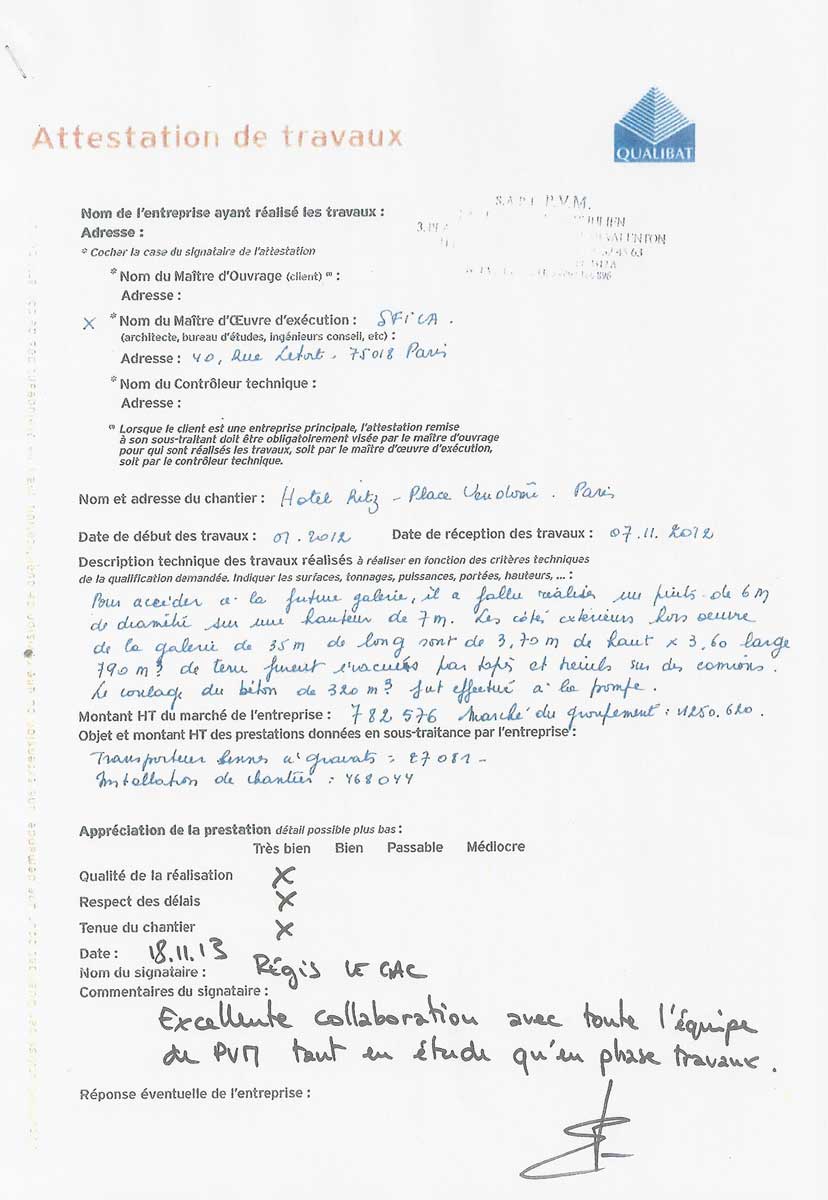 Attestation de travaux
QUALIBAT
Nom de l'entreprise ayant réalisé les travaux :
S.A.R.L P.V.M.
Adresse :
VALENTON
* Cocher la case du signataire de l'attestation
* Nom du Maître d'Ouvrage (client) (1) :
Adresse :
X * Nom du Maître d'Œuvre d'exécution : SFICA .
(architecte, bureau d'études, ingénieurs conseil, etc) :
Adresse : 40, Rue Letort . 75018 Paris
* Nom du Contrôleur technique :
Adresse :
(1) Lorsque le client est une entreprise principale, l'attestation remise
à son sous-traitant doit être obligatoirement visée par le maître d'ouvrage
pour qui sont réalisés les travaux, soit par le maître d'œuvre d'exécution,
soit par le contrôleur technique.
Nom et adresse du chantier : Hotel Ritz - Place Vendome . Paris
Date de début des travaux : 01 . 2012 Date de réception des travaux : 07.11. 2012
Description technique des travaux réalisés à réaliser en fonction des critères techniques
de la qualification demandée. Indiquer les surfaces, tonnages, puissances, portées, hauteurs, ... :
Pour accéder à la future galerie, il a fallu réaliser un puits de 6 M
de diamètre sur une hauteur de 7 m. Les côtés extérieurs hors oeuvre
de la galerie de 35 m de long sont de 3,70 m de haut x 3,60 large
790 m3 de terre furent évacués par tapis et treuils sur des camions .
Le coulage du béton de 320 m3 fut effectué à la pompe .
Montant HT du marché de l'entreprise : 782 576 Marché du groupement : 1250.620 .
Objet et montant HT des prestations données en sous-traitance par l'entreprise :
Transporteur bennes à gravats : 27 081 -
Installation de chantier : 468 044
Appréciation de la prestation détail possible plus bas :
Très bien Bien Passable Médiocre
Qualité de la réalisation X
Respect des délais X
Tenue du chantier X
Date : 18.11.13
Nom du signataire : Régis LE GAC
Commentaires du signataire :
Excellente collaboration avec toute l'équipe
de PVM tant en étude qu'en phase travaux .
Réponse éventuelle de l'entreprise :